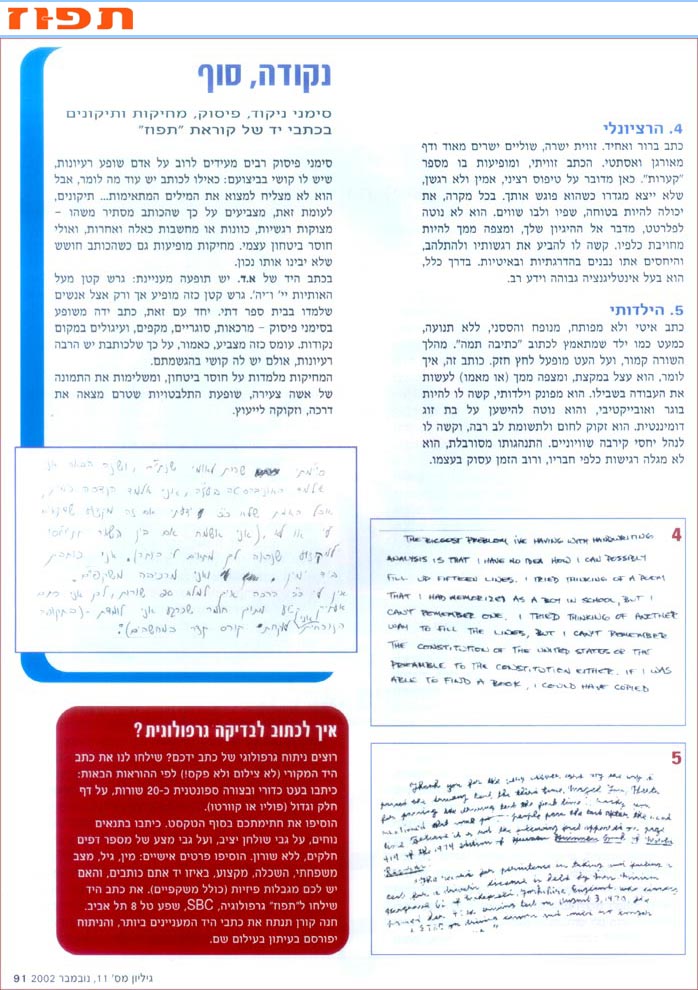 תפוז
4. הרציונלי
כתב ברור ואחיד. זווית ישרה, שוליים ישרים מאוד ודף
מאורגן ואסתטי. הכתב זוויתי, ומופיעות בו מספר
"קערות". כאן מדובר על טיפוס רציני, אמין ולא רגשן,
שלא ייצא מגדרו כשהוא פוגש אותך. בכל מקרה, את
יכולה להיות בטוחה, שפיו ולבו שווים. הוא לא נוטה
לפלרטט, מדבר אל ההיגיון שלך, ומצפה ממך להיות
מחויבת כלפיו. קשה לו להביע את רגשותיו ולהתלהב,
והיחסים אתו נבנים בהדרגתיות ובאיטיות. בדרך כלל,
הוא בעל אינטליגנציה גבוהה וידע רב.
5. הילדותי
כתב איטי ולא מפותח, מנופח והססני, ללא תנועה,
כמעט כמו ילד שמתאמץ לכתוב "כתיבה תמה". מהלך
השורה קמור, ועל העט מופעל לחץ חזק. כותב זה, איך
לומר, הוא עצל במקצת, ומצפה ממך (או מאמו) לעשות
את העבודה בשבילו. הוא מפונק וילדותי, קשה לו להיות
בוגר ואובייקטיבי, והוא נוטה להישען על בת זוג
דומיננטית. הוא זקוק לחום ולתשומת לב רבה, וקשה לו
לנהל יחסי קירבה שוויוניים. התנהגותו מסורבלת, הוא
לא מגלה רגישות כלפי חבריו, ורוב הזמן עסוק בעצמו.
4
THE BIGGEST PROBLEM I'VE HAVING WITH HANDWRITING
ANALYSIS IS THAT I HAVE NO IDEA HOW I CAN POSSIBLY
FILL UP FIFTEEN LINES. I TRIED THINKING OF A POEM
THAT I HAD MEMORIZED AS A BOY IN SCHOOL, BUT I
CAN'T REMEMBER ONE. I TRIED THINKING OF ANOTHER
WAY TO FILL THE LINES, BUT I CAN'T REMEMBER
THE CONSTITUTION OF THE UNITED STATES OR THE
PREAMBLE TO THE CONSTITUTION EITHER. IF I WAS
ABLE TO FIND A BOOK, I COULD HAVE COPIED
5
Thank you for the
the third time.
the first time
people pass the test after the
of the 1974 edition of Guinness Book of World
Records:
The record for persistence in taking and failing a
test for a driver's license is held by
Yorkshire, England, who
test on August 3, 1970.
נקודה, סוף
סימני ניקוד, פיסוק, מחיקות ותיקונים
בכתבי יד של קוראת "תפוז"
סימני פיסוק רבים מעידים לרוב על אדם שופע רעיונות,
שיש לו קושי בביצועם: כאילו לכותב יש עוד מה לומר, אבל
הוא לא מצליח למצוא את המילים המתאימות... תיקונים,
לעומת זאת, מצביעים על כך שהכותב מסתיר משהו –
מצוקות רגשיות, כוונות או מחשבות כאלה ואחרות, ואולי
חוסר ביטחון עצמי. מחיקות מופיעות גם כשהכותב חושש
שלא יבינו אותו נכון.
בכתב היד של א.ד. יש תופעה מעניינת: גרש קטן מעל
האותיות יי' ו-יה'. גרש קטן כזה מופיע אך ורק אצל אנשים
שלמדו בבית ספר דתי. יחד עם זאת, כתב ידה משופע
בסימני פיסוק – מרכאות, סוגריים, מקפים, ועיגולים במקום
נקודות. עומס כזה מצביע, כאמור, על כך שלכותבת יש הרבה
רעיונות, אולם יש לה קושי בהגשמתם.
המחיקות מלמדות על חוסר ביטחון, ומשלימות את התמונה
של אשה צעירה, שופעת התלבטויות שטרם מצאה את
דרכה, וזקוקה לייעוץ.
סיימתי שרות לאומי ושנה הבאה אני
אלמד אני אלמד הנדסה
אבל האמת שלא כ"כ ידעתי אם זה מקצוע שמתאים
לי או לא. (אני אשמח אם בין השאר
למקצוע אני כותבת
ביד ימין. ואני מרכיבה משקפיים.
אין לי כ"כ הרבה איך למלא 20 שורות, לכן אני
קטע מתוך חומר שכרגע אני לומדת - (בתקופה
אני קורס קצר במחשבים).
איך לכתוב לבדיקה גרפולוגית?
רוצים ניתוח גרפולוגי של כתב ידכם? שילחו לנו את כתב
היד המקורי (לא צילום ולא פקס!) לפי ההוראות הבאות:
כיתבו בעט כדורי ובצורה ספונטנית כ-20 שורות, על דף
חלק וגדול (פוליו או קוורטו).
הוסיפו את חתימתכם בסוף הטקסט. כיתבו בתנאים
נוחים, על גבי שולחן יציב, ועל גבי מצע של מספר דפים
חלקים, ללא שורות. הוסיפו פרטים אישיים: מין, גיל, מצב
משפחתי, השכלה, מקצוע, באיזו יד אתם כותבים, והאם
יש לכם מגבלות פיזיות (כולל משקפיים). את כתב היד
שילחו ל"תפוז" גרפולוגיה, SBC, שפע טל 8 תל אביב.
חנה קורן תנתח את כתבי היד המעניינים ביותר, והניתוח
יפורסם בעיתון בעילום שם.
גיליון מס' 11, נובמבר 2002 91